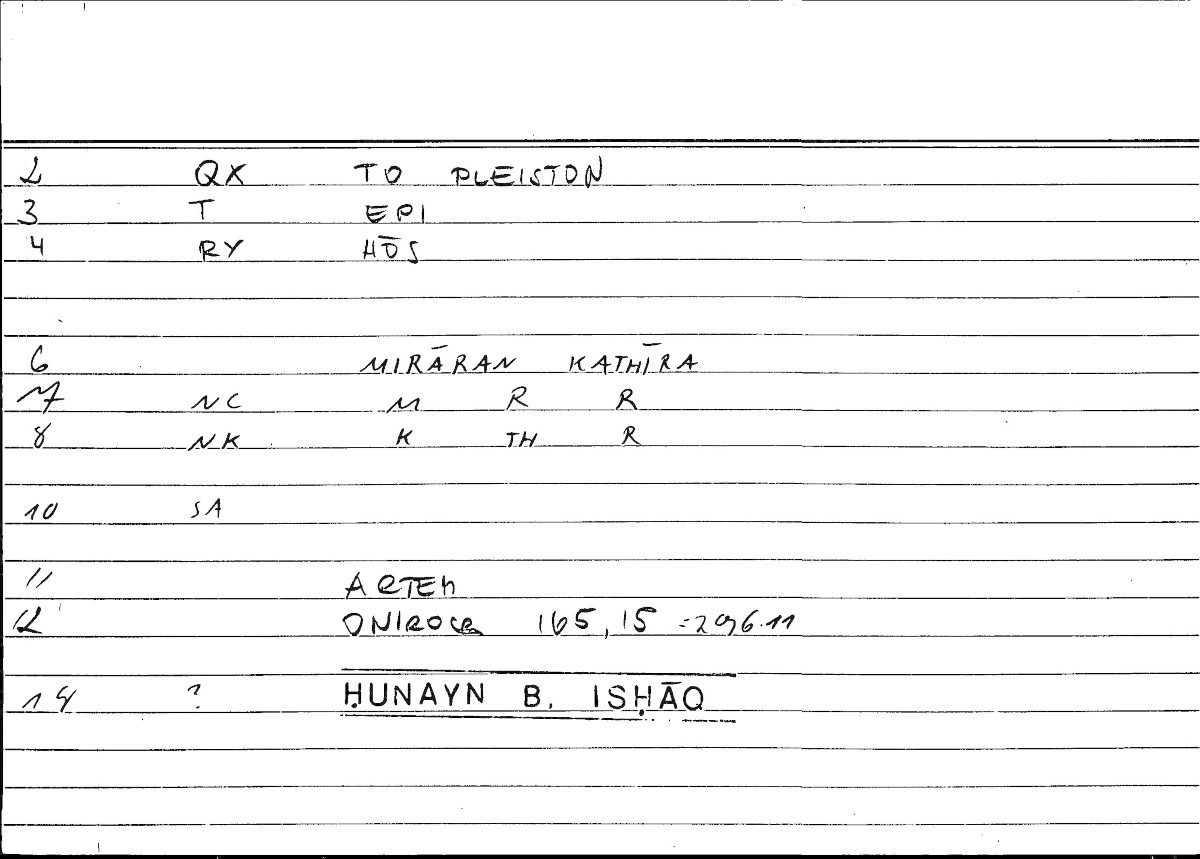 2 QX TO PLEISTON
3 T EPI
4 RY HŌS
6 MIRĀRAN KATHĪRA
7 NC M R R
8 NK K TH R
10 SA
11 ARTEM
12 ONIROCR 165,15 = 296.11
14 ? ḤUNAYN B. ISḤĀQ